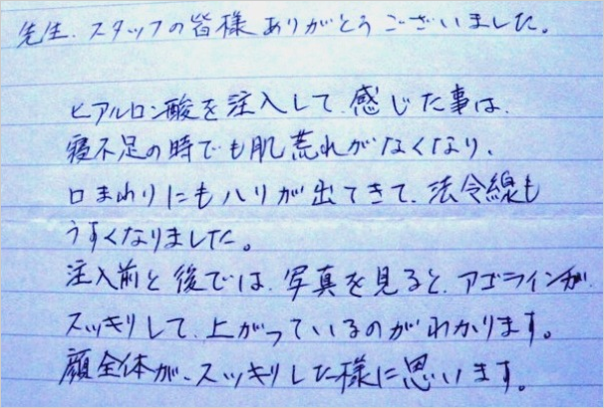 先生、スタッフの皆様ありがとうございました。
ヒアルロン酸を注入して、感じた事は、
寝不足の時でも肌荒れがなくなり、
口まわりにもハリが出てきて、法令線も
うすくなりました。
注入前と後では、写真を見ると、アゴラインが、
スッキリして、上がっているのがわかります。
顔全体が、スッキリした様に思います。